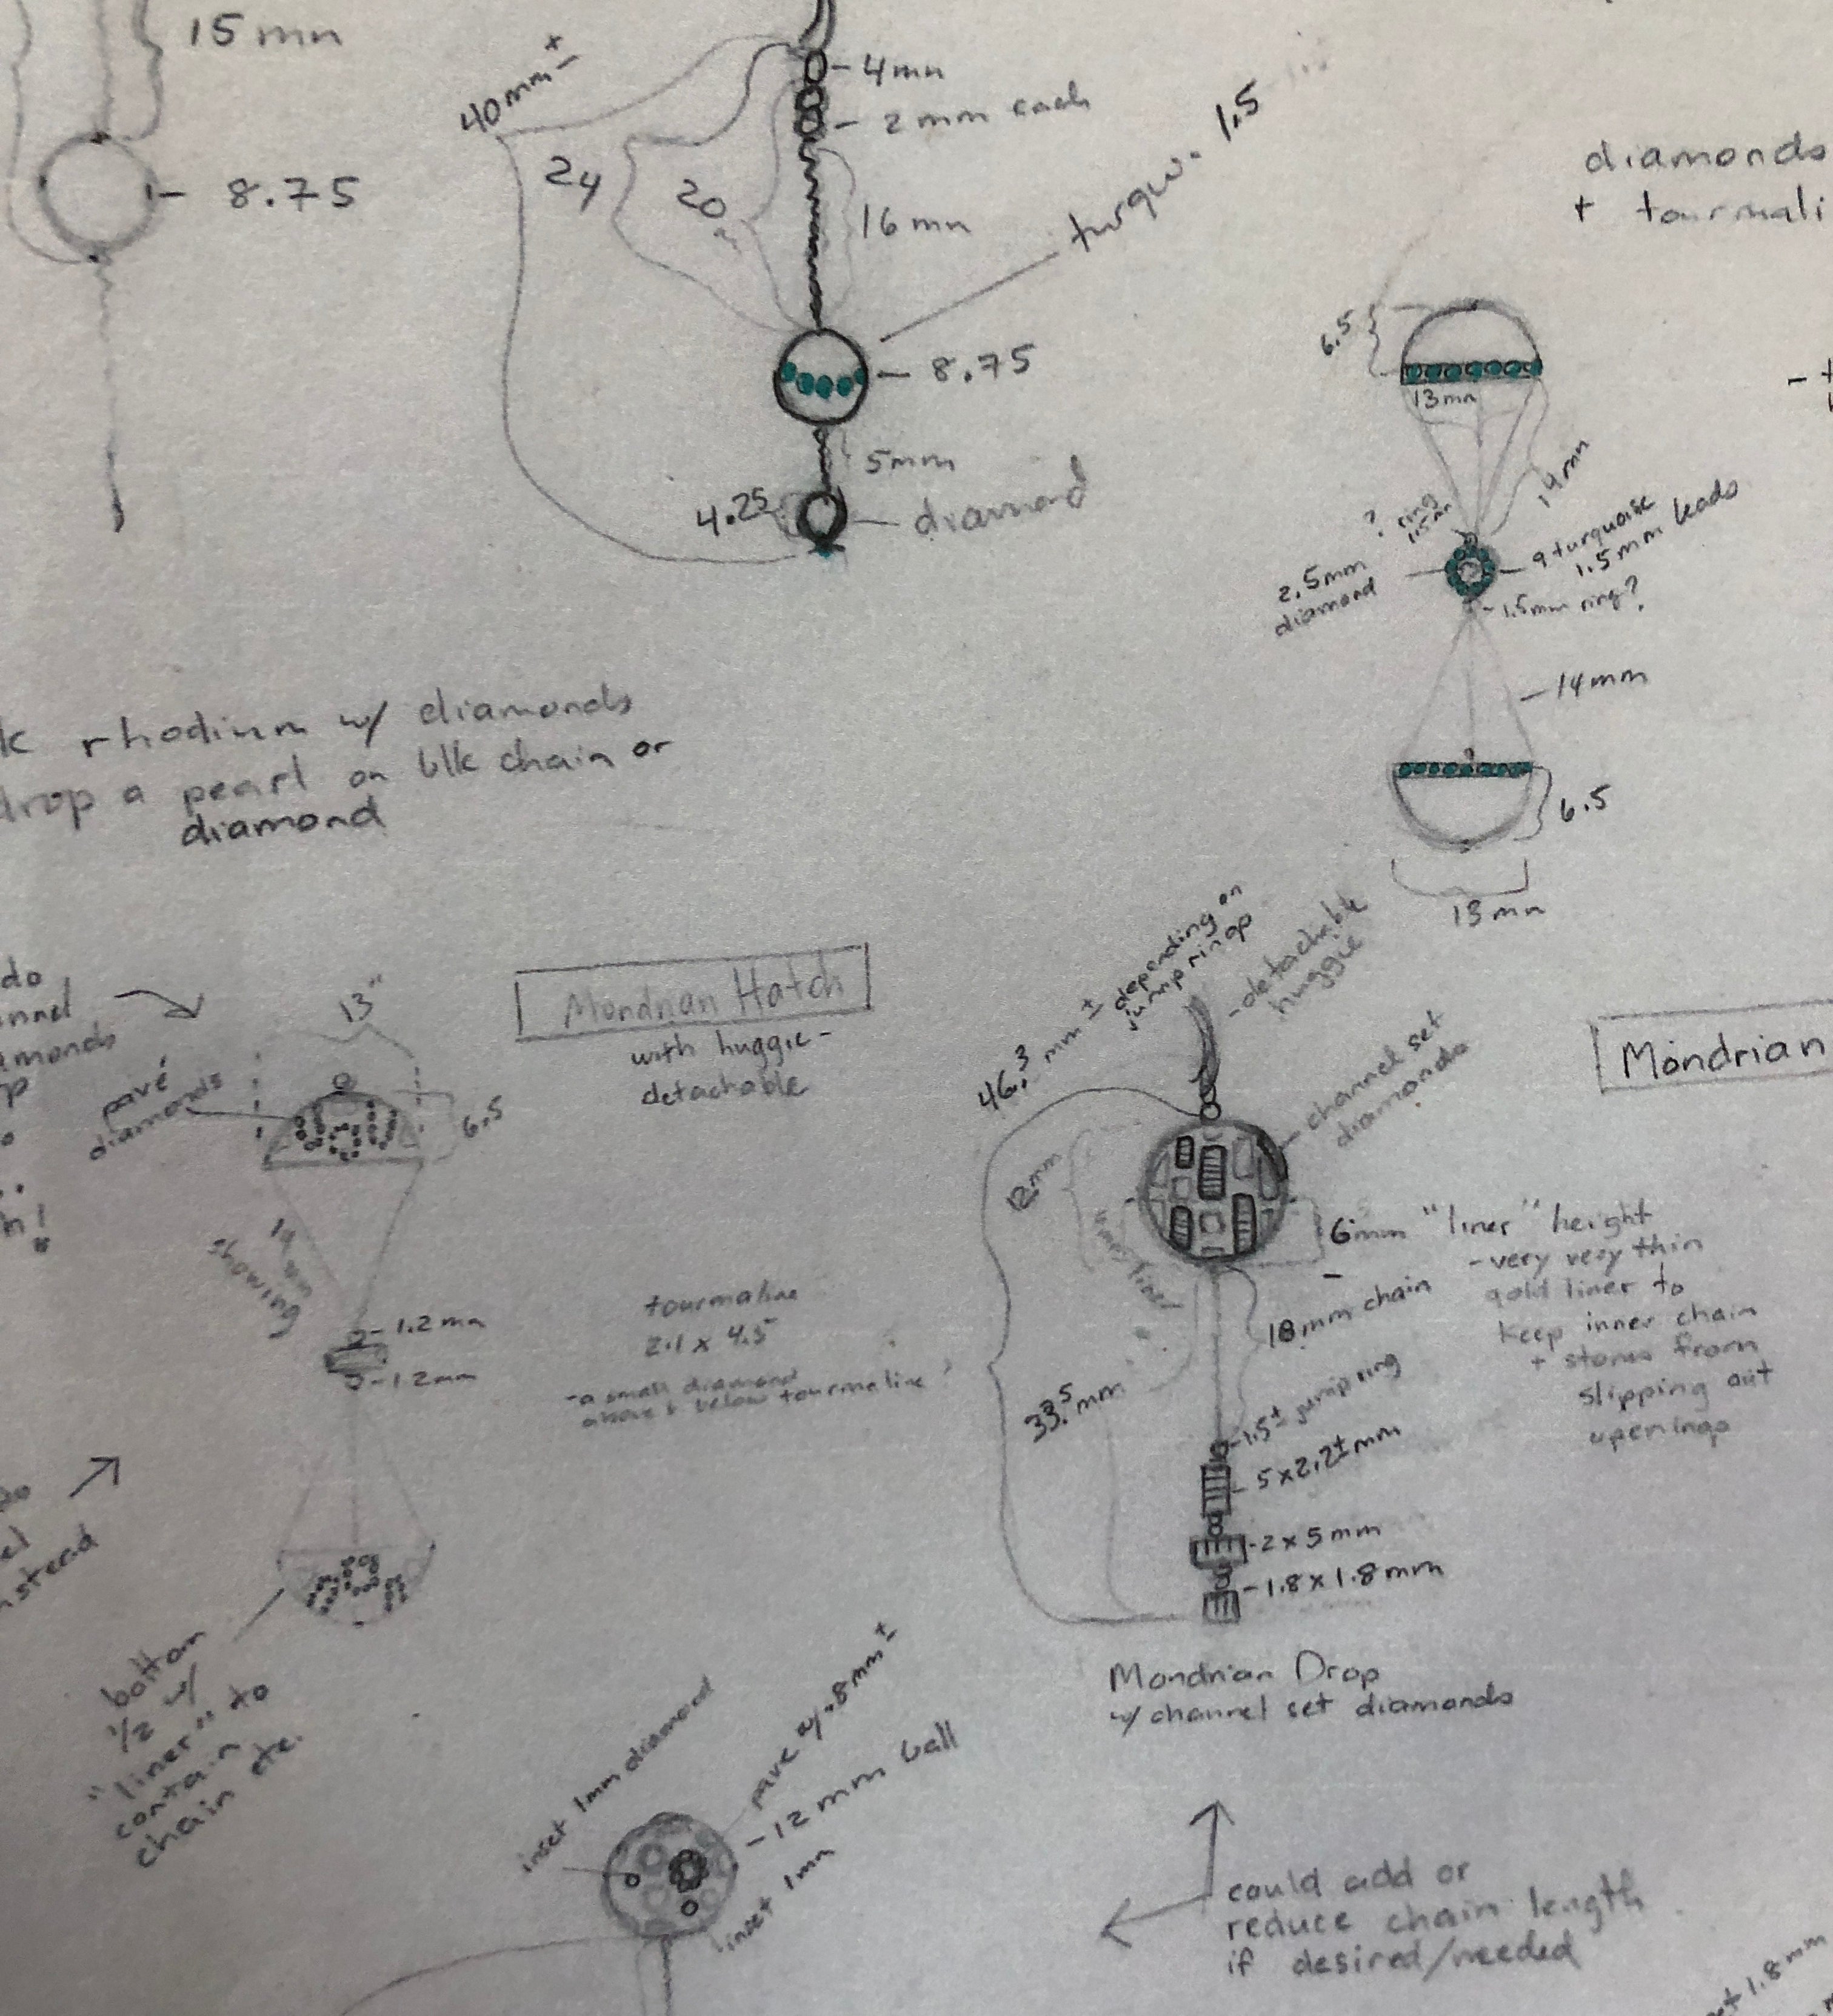 15 mm
8.75
40mm ±
4mm
2 mm each
24
20
16 mm
turqu. 1.5
8.75
5mm
4.25
diamond
diamonds
+ tourmali
6.5
13mm
14mm
? ring
1.5mm
2.5mm
diamond
9 turquoise
1.5mm beads
1.5mm ring?
14mm
6.5
13mm
k rhodium w/ diamonds
drop a pearl on blk chain or
diamond
do
nnel
amonds
p
13"
pavé
diamonds
6.5
14mm
showing
1.2mm
1.2mm
Mondrian Hatch
with huggie-
detachable
tourmaline
2.1 x 4.5
-a small diamond
above & below tourmaline?
el
nstead
bottom
1/2 w/
"liner" to
contain
chain etc.
46.3 mm ± depending on
jump ring op
-detachable
huggie
channel set
diamonds
12mm
liner
6mm "liner" height
-very very thin
gold liner to
keep inner chain
+ stones from
slipping out
openings
18mm chain
33.5 mm
1.5± jump ring
5x2.2±mm
2x5mm
1.8x1.8mm
Mondrian Drop
w/ channel set diamonds
Mondrian
inset 1mm diamond
pave w/.8mm±
-12 mm ball
inset 1mm
could add or
reduce chain length
if desired/needed
1.8mm